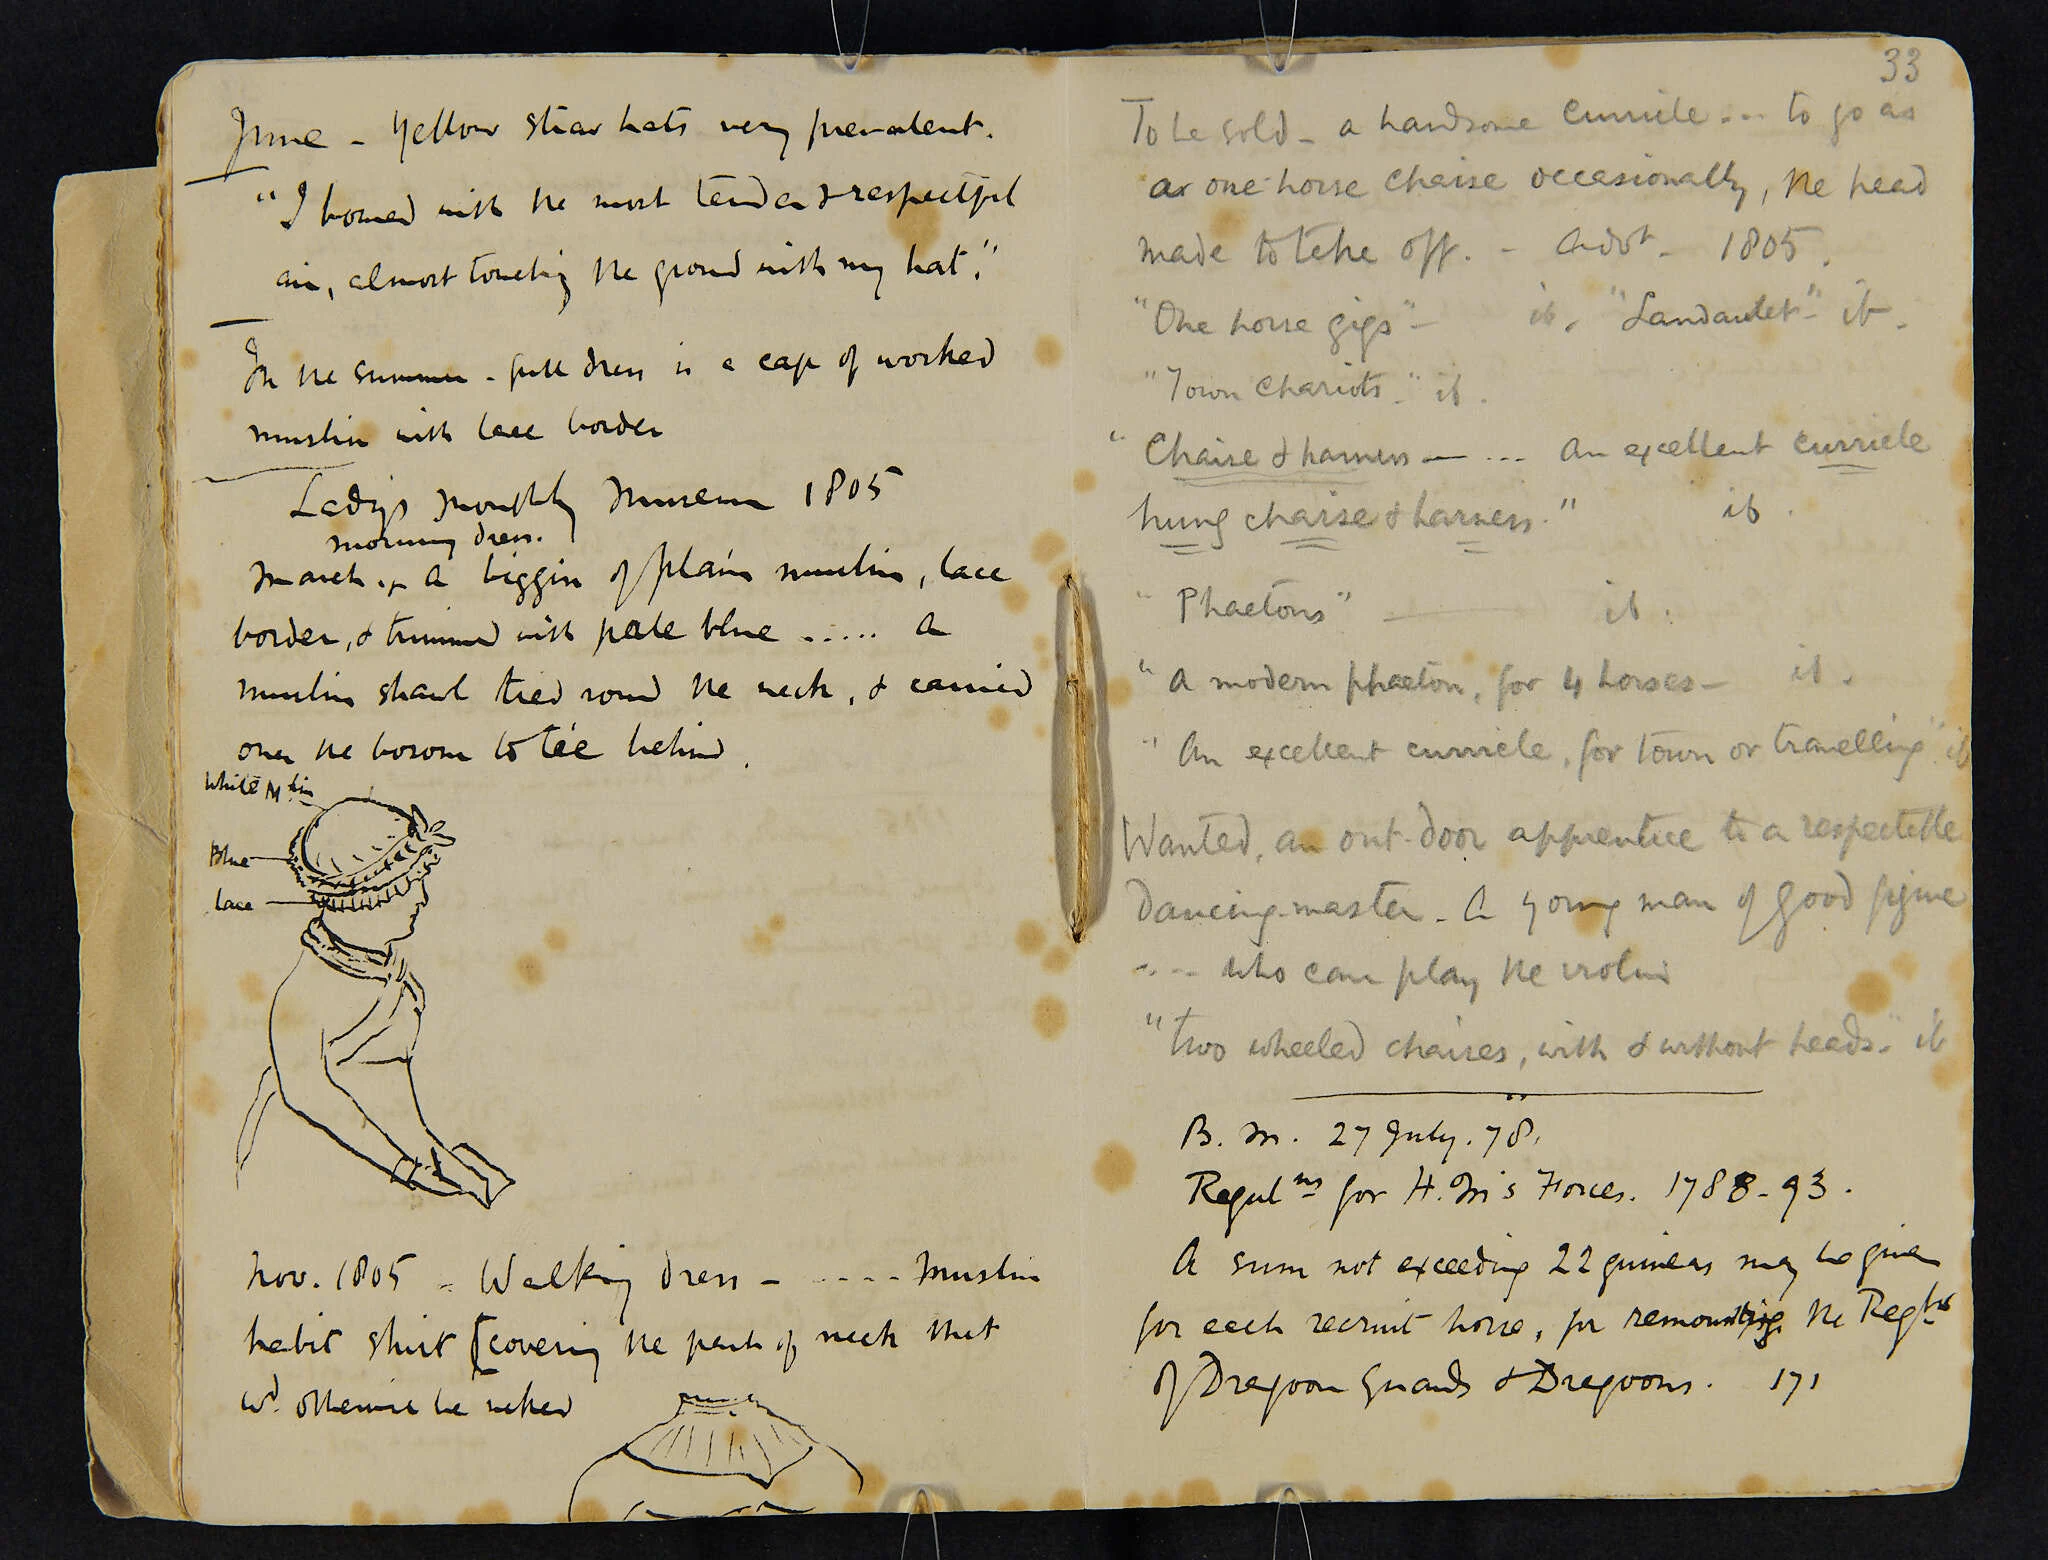 June – Yellow straw hats very prevalent.
"I bowed with the most tender & respectful
air, almost touching the ground with my hat."
In the summer – full dress is a cap of worked
muslin with lace border
Lady's Monthly Museum 1805
morning dress.
March. A biggin of plain muslin, lace
border, & trimmed with pale blue ..... A
muslin shawl tied round the neck, & carried
over the bosom to tie behind.
White M'lin
Blue
lace
Nov. 1805 – Walking dress – .... Muslin
habit shirt [covering the part of neck that
wd. otherwise be naked
33
To be sold – a handsome Curricle ... to go as
a one horse chaise occasionally, the head
made to take off. – Advt – 1805.
"One horse gigs" – ib. "Landaulet" – ib.
"Town Chariots." ib.
"Chaise & harness — ... An excellent curricle
hung chaise & harness." ib.
"Phaetons" — ib.
"A modern phaeton, for 4 horses – ib.
"An excellent curricle, for town or travelling" ib
Wanted, an out-door apprentice to a respectable
Dancing-master – A young man of good figure
... who can play the violin
"Two wheeled chaises, with & without heads." ib
B. M. 27 July. 78.
Regulns for H. M's Forces. 1788–93.
A sum not exceeding 22 guineas may be given
for each recruit horse, for remounting the Regts
of Dragoon Guards & Dragoons. 171